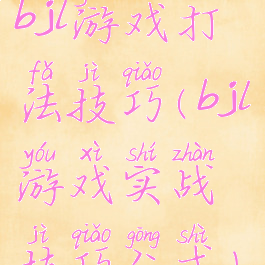 bjl游戏打
fǎ jì qiǎo
法技巧(bjl
yóu xì shí zhàn
游戏实战
jì qiǎo gōng shì
技巧公式)